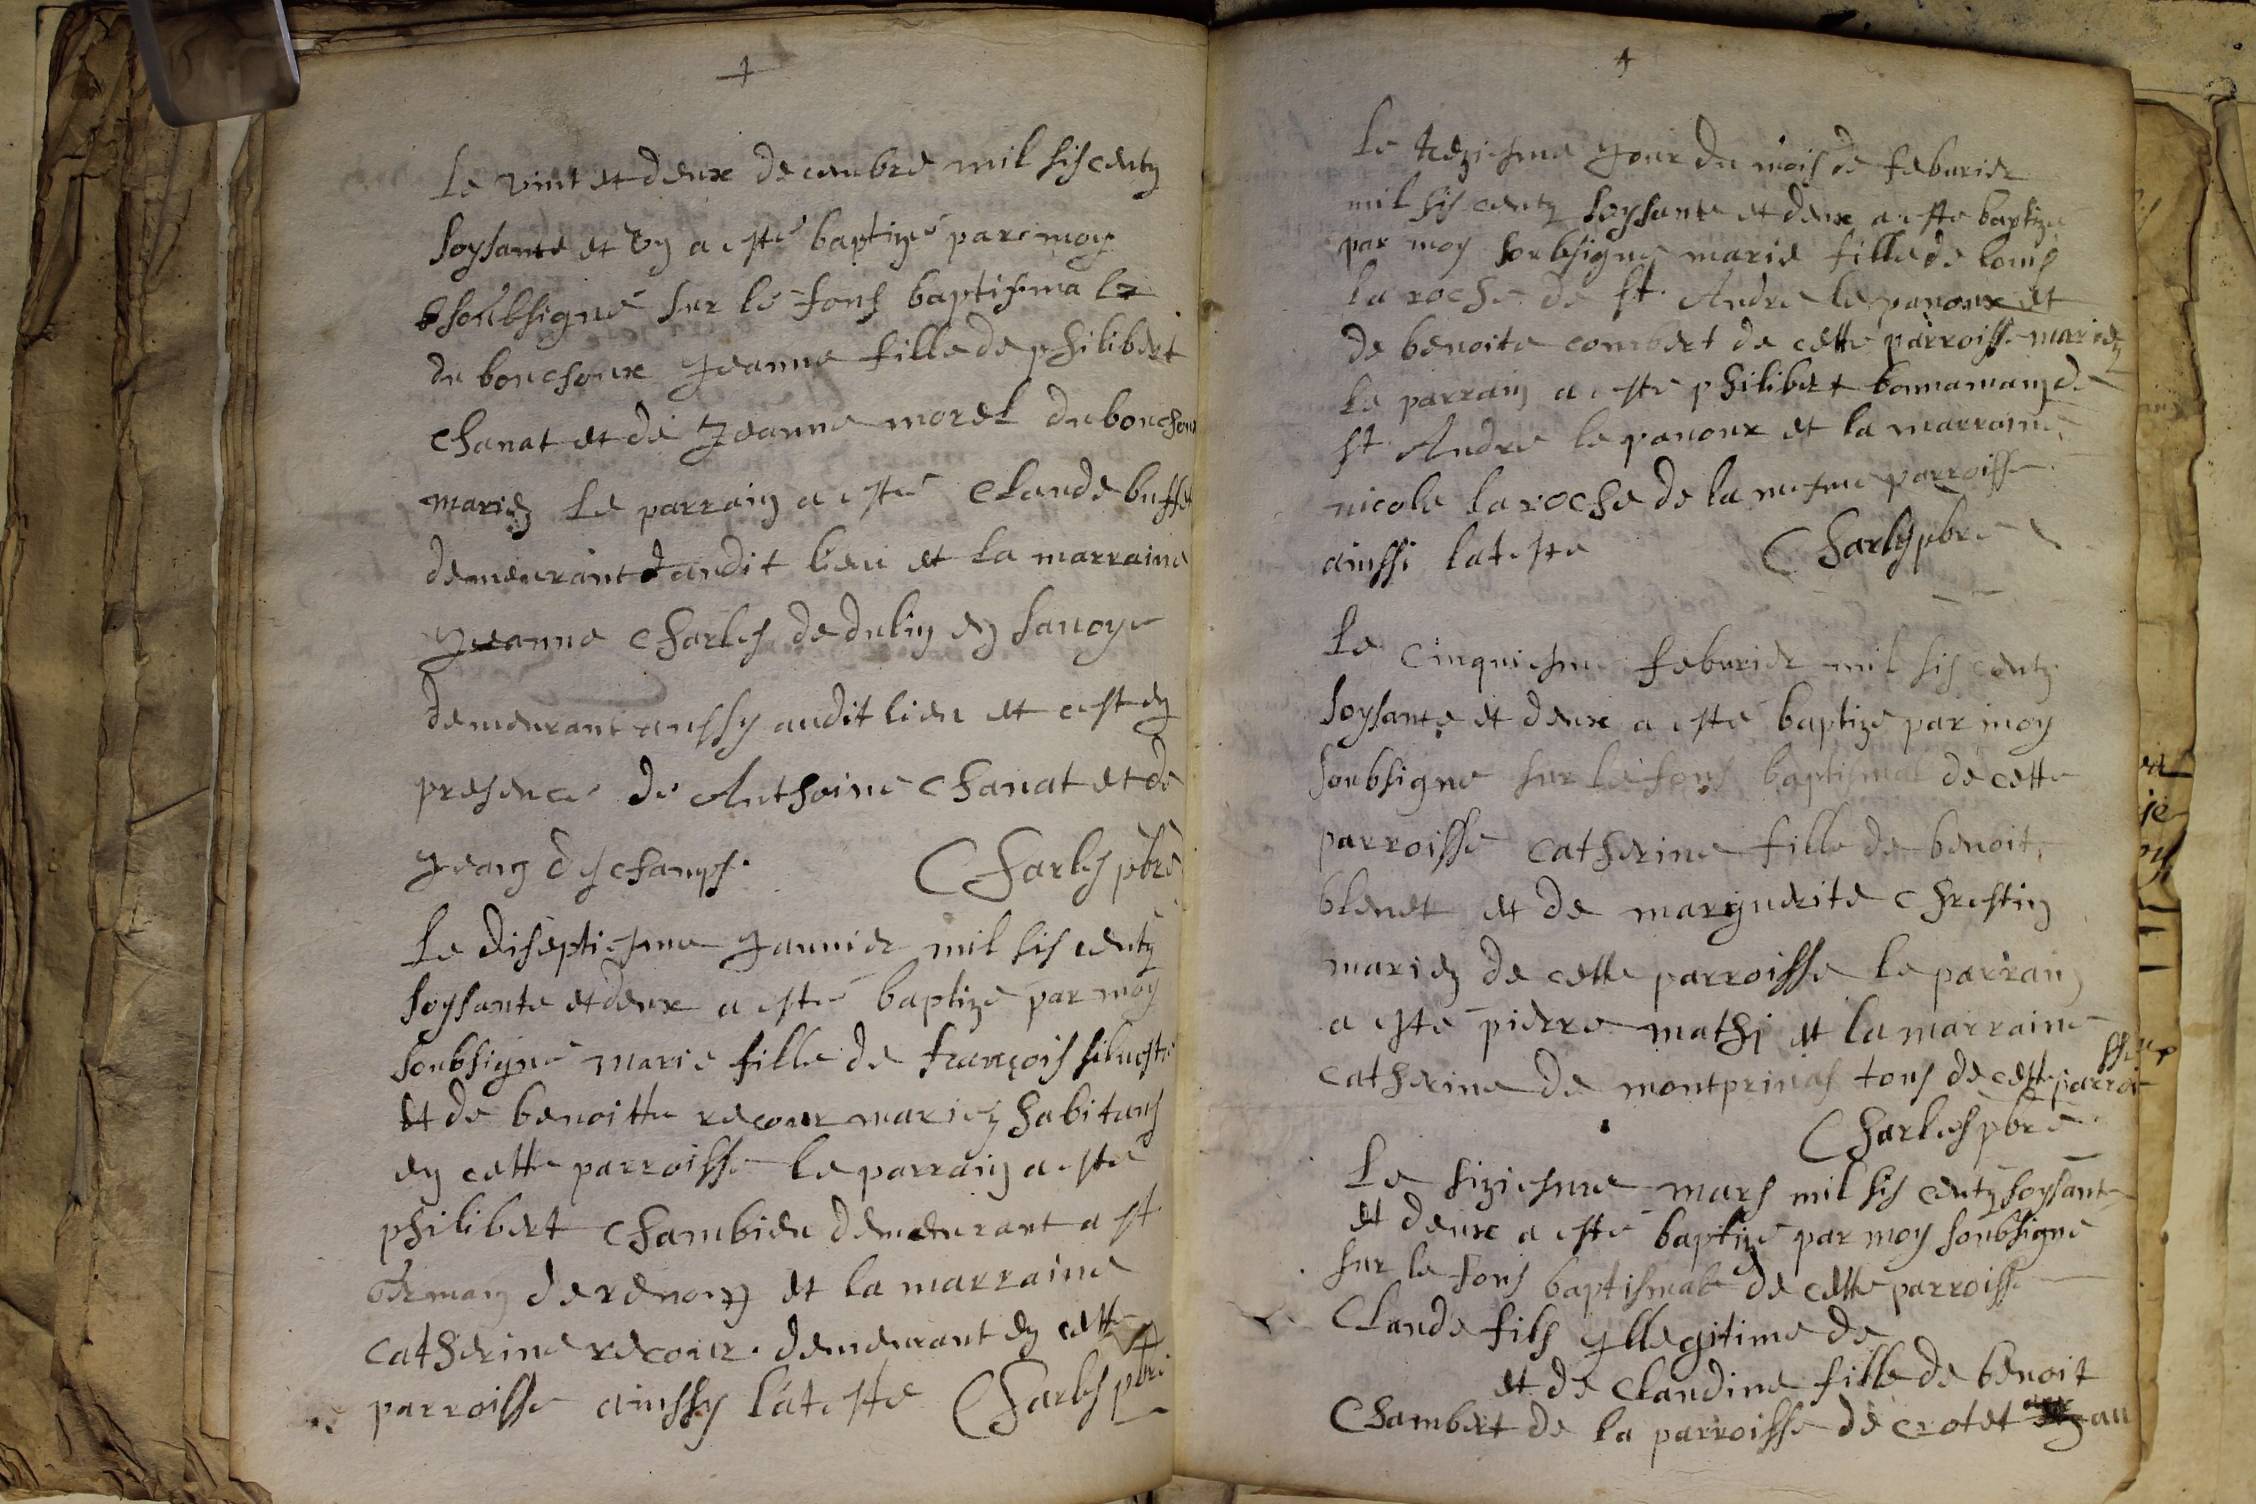 Le vint et deux decembre mil sis centz
soysante et un a esté baptizé par moy
soubsigné sur le fons baptismale
du bouchoux Jeanne fille de philibert
chanat et de Jeanne morel du bouchoux
mariez Le parrain a esté Claude buffet
demeurant audit lieu et La marraine
Jeanne Charles de dulin en savoye
demeurant aussy audit lieu et cest en
presence de Anthoine Chanat et de
Jean des champs. Charles pbre
Le diseptiesme Januier mil sis centz
soysante et deux a esté baptize par moy
soubsigné marie fille de françois siluestre
et de benoitte recour mariez habitans
en cette parroisse le parrain a esté
philibert Chambieu demeurant a st
germain de renom et la marraine
catherine recour demeurant en cette
parroisse ainssy l'ateste Charles pbre
Le treziesme Jour du mois de feburier
mil sis centz soysante et deux a este baptize
par moy soubsigne marie fille de louis
la roche de st Andre le panoux et
de benoite combert de cette parroisse mariez
Le parrain a esté philibert bonnamain de
st Andre le panoux et la marraine
nicole la roche de la mesme parroisse
ainssi lateste Charles pbre
Le cinquiesme feburier mil sis centz
soysante et deux a esté baptize par moy
soubsigne sur le fons baptismal de cette
parroisse catherine fille de benoit
blenet et de marguerite Chrestin
mariez de cette parroisse le parrain
a esté pierre mathi et la marraine
catherine de montprinas tous de cette parroisse
Charles pbre
Le siziesme mars mil sis centz soysante
et deux a esté baptizé par moy soubsigné
sur le fons baptismale de cette parroisse
Claude fils yllegitime de
et de Claudine fille de benoit
Chambert de la parroisse de crotet au